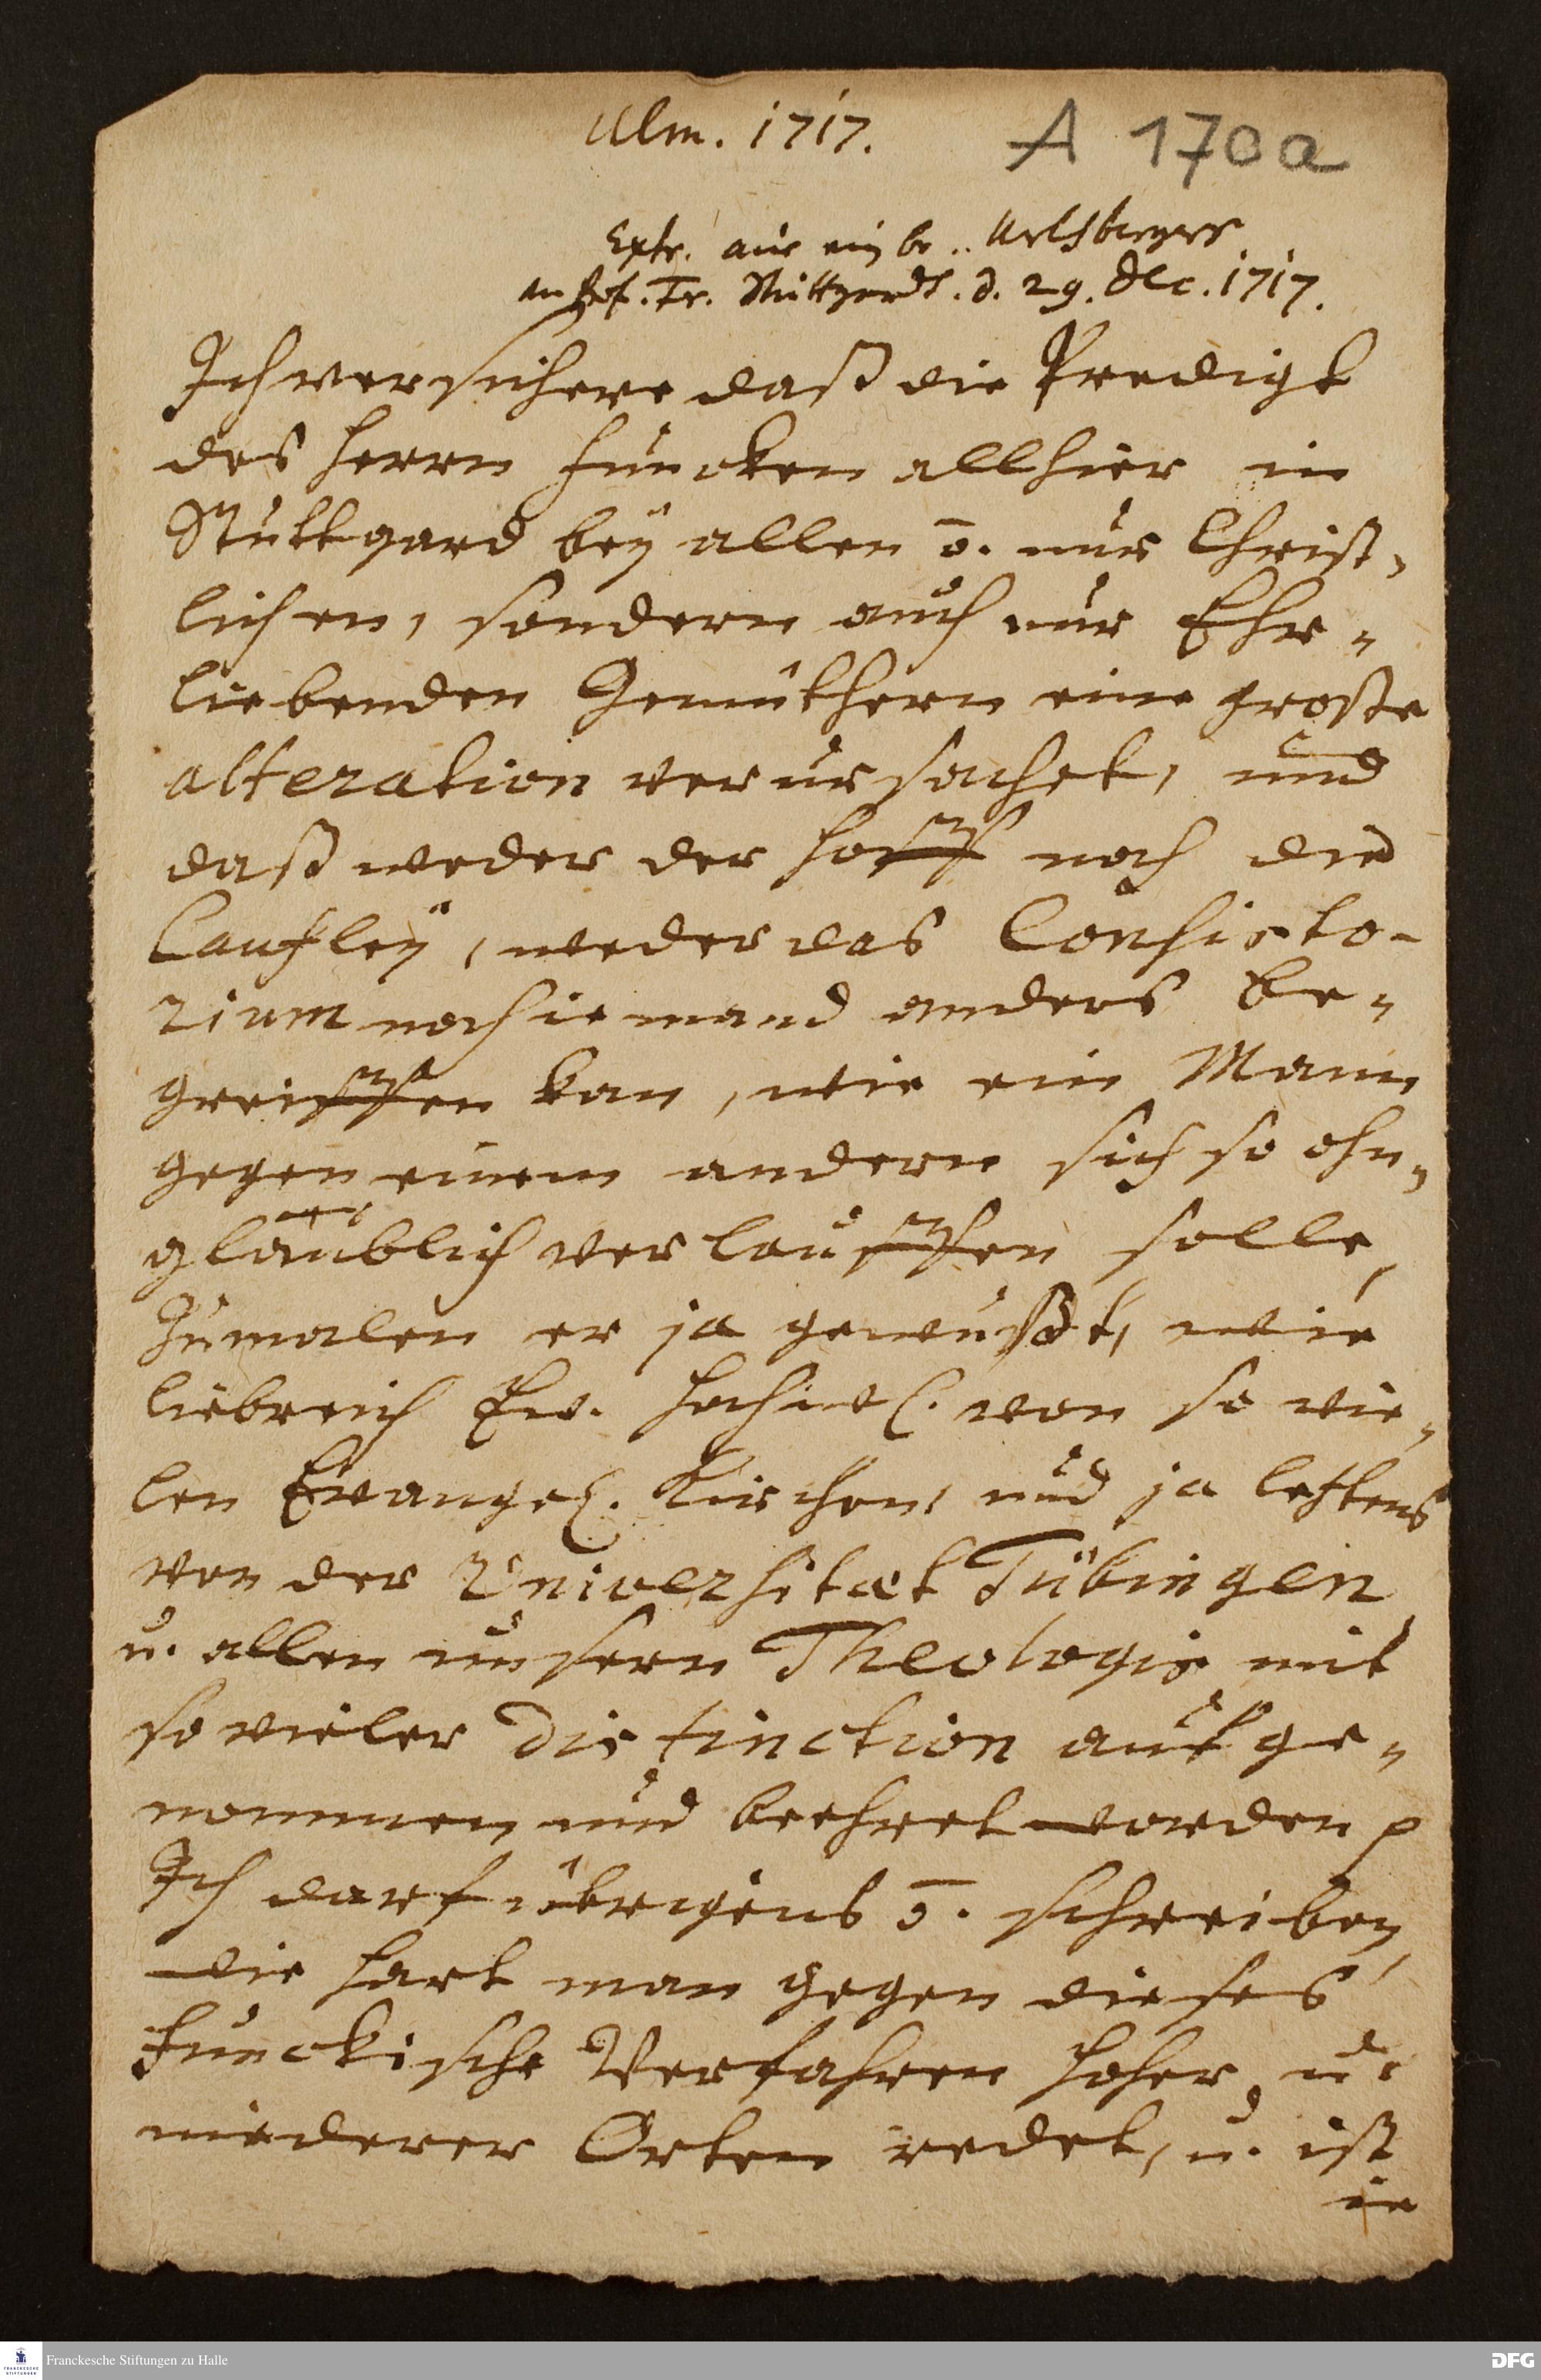 Ulm. 1717.
A 170a
Extr. aus ein br. Urlsbergers
an Prof. Fr. Stuttgardt. d. 29. Dec. 1717.
Ich versichere daß die Predigt
des Herrn Funcken allhier in
Stuttgard bey allen õ. nur Christ-
lichen, sondern auch nur Ehr-
liebenden Gemüthern eine große
alteration verursachet, und
daß weder der Hoff noch die
Cantzley, weder das Consisto-
rium noch iemand anders be-
greiffen kan, wie ein Mann
gegen einem andern sich so ohn-
gläublich verlauffen solle,
Zumalen er ja gewußt, wie
liebreich Ew. Hochw. von so vie-
len Evangel. Kirchen, und ja letztens
von der Universitæt Tübingen
u. allen unsern Theologis mit
so vieler Distinction aufge-
nommen und beehret worden p
Ich darf übrigens õ. schreiben,
wie hart man gegen dieses
Funckische Verfahren hoher u.
niederer Orten redet, u. ist
in
Franckesche Stiftungen zu Halle
DFG